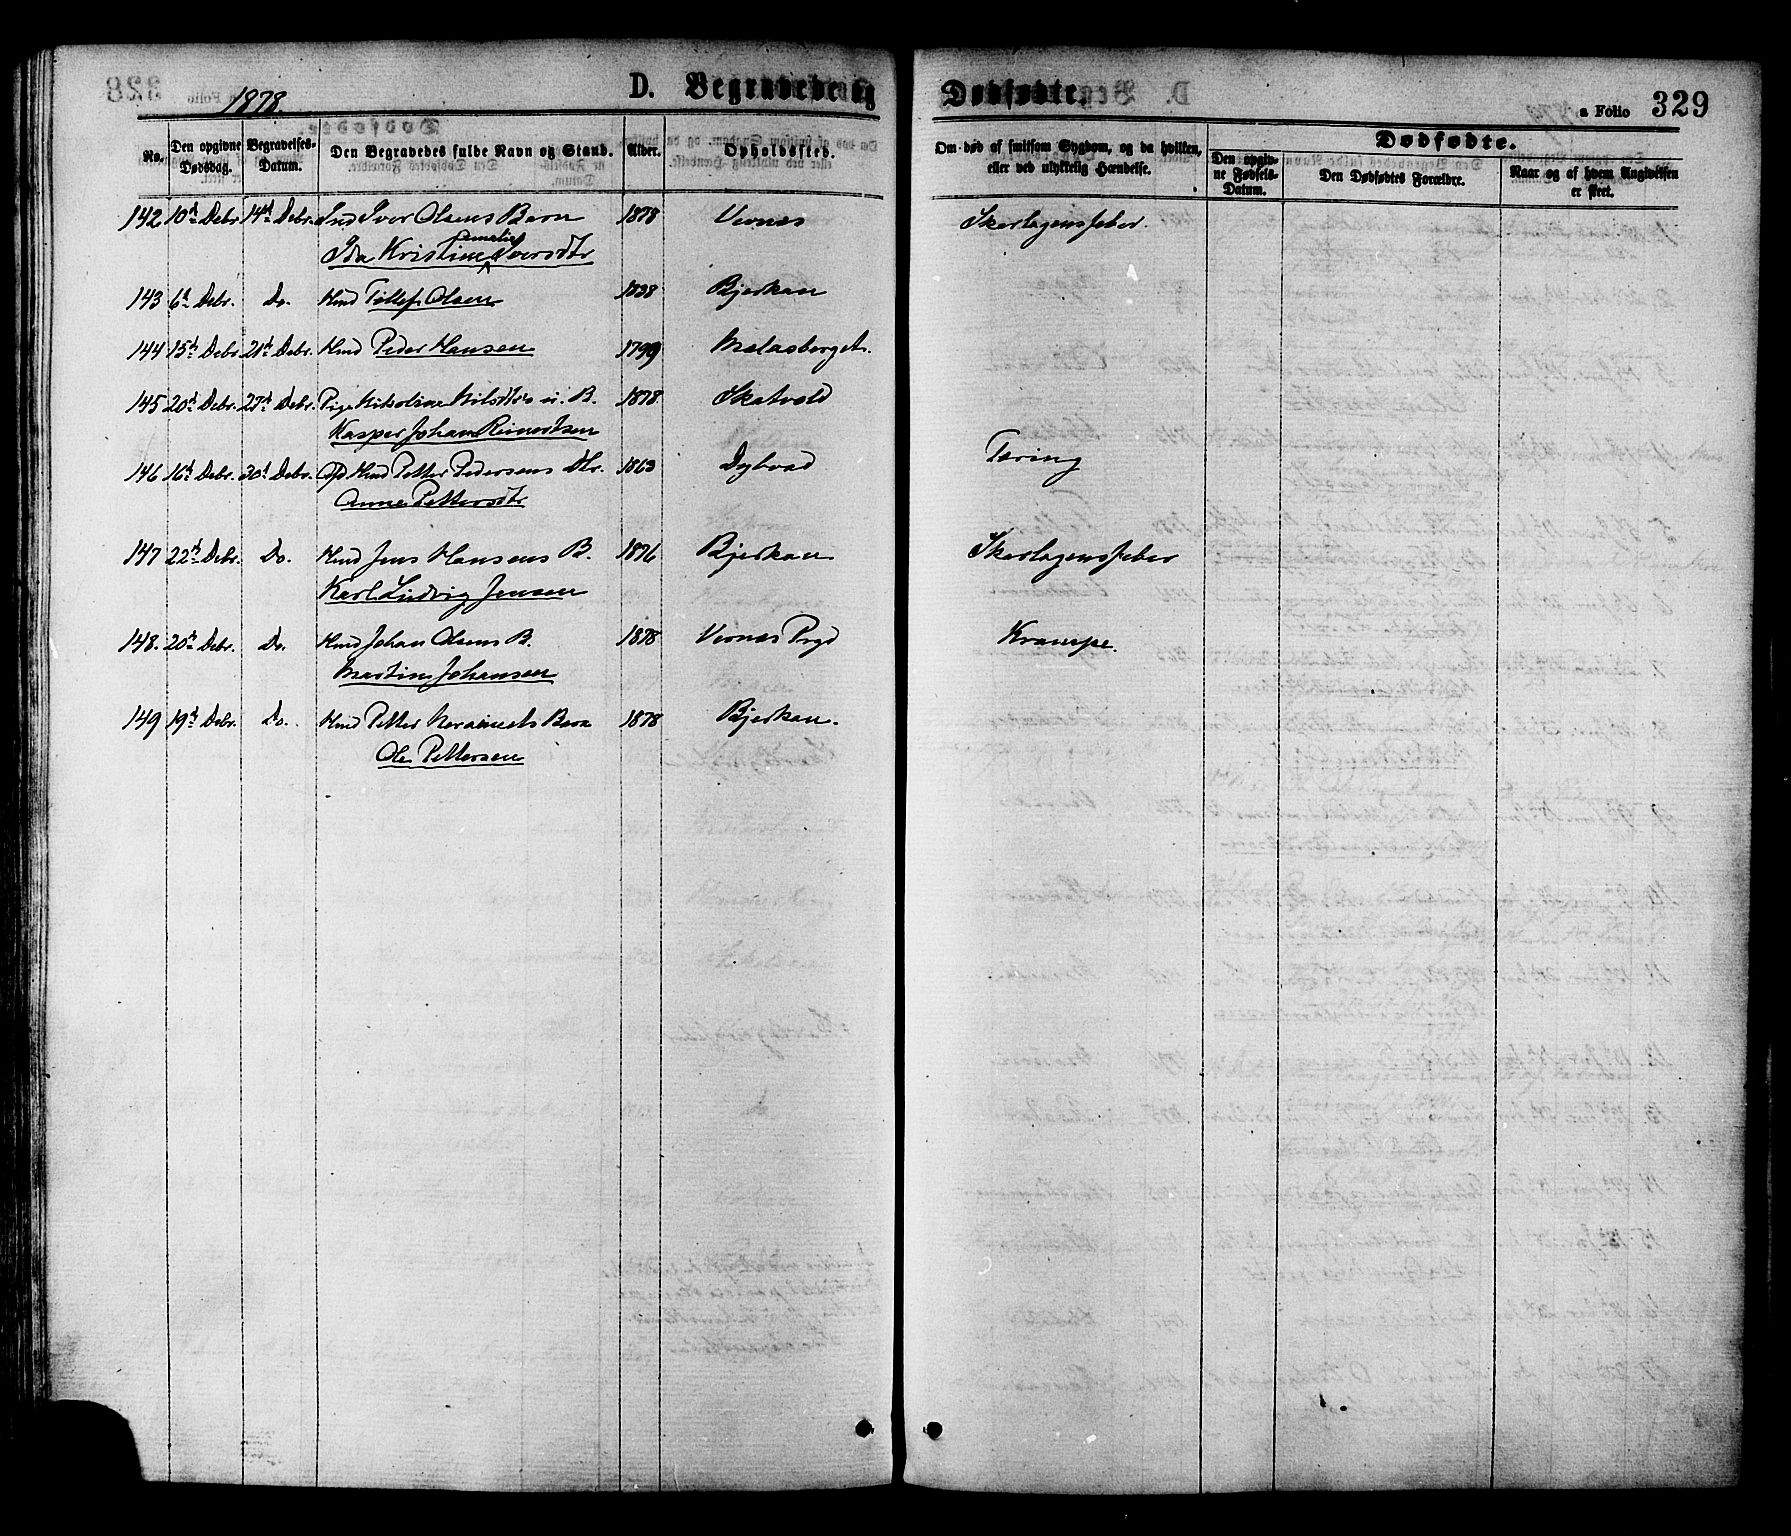 1878.
D. Begravede og Dødfødte.
a Folio 329
No.
Den opgivne Dødsdag.
Begravelses-Datum.
Den Begravedes fulde Navn og Stand.
Alder.
Opholdssted.
Om død af smitsom Sygdom, og da hvilken, eller ved ulykkelig Hændelse.
Dødfødte.
Den opgivne Fødsels-Datum.
Den Dødfødtes Forældre.
Naar og af hvem Angivelsen er skeet.
142 10d Debr 14d Debr. Ind Iver Olsens Barn 1878 Vernæs Skarlagensfeber.
Ida Kristine Amalie Iversdtr
143 6d Debr. Do. Hmd Tollef Olsen 1838 Bjerkan
144 15d Debr. 21d Debr. Hmd Peder Hansen 1799 Mælasberget.
145 20d Debr. 27d Debr. Pige Nikoline Nilsdtrs u. B. 1878. Skatvold
Kasper Johan Reinertsen
146 16d Debr. 30d Debr. Hmd Petter Pedersens Dtr. 1863 Dybvad Tæring
Anne Pettersdtr
147 22d Debr. Do. Hmd Jens Hansens B. 1876 Bjerkan Skarlagensfeber
Karl Ludvig Jensen
148. 20d Debr. Do. Hmd Johan Olsens B. 1878 Vernæs Prgd Krampe.
Martin Johansen
149 19d Debr. Do. Hmd Petter Barn 1878 Bjerkan.
Ole Pettersen